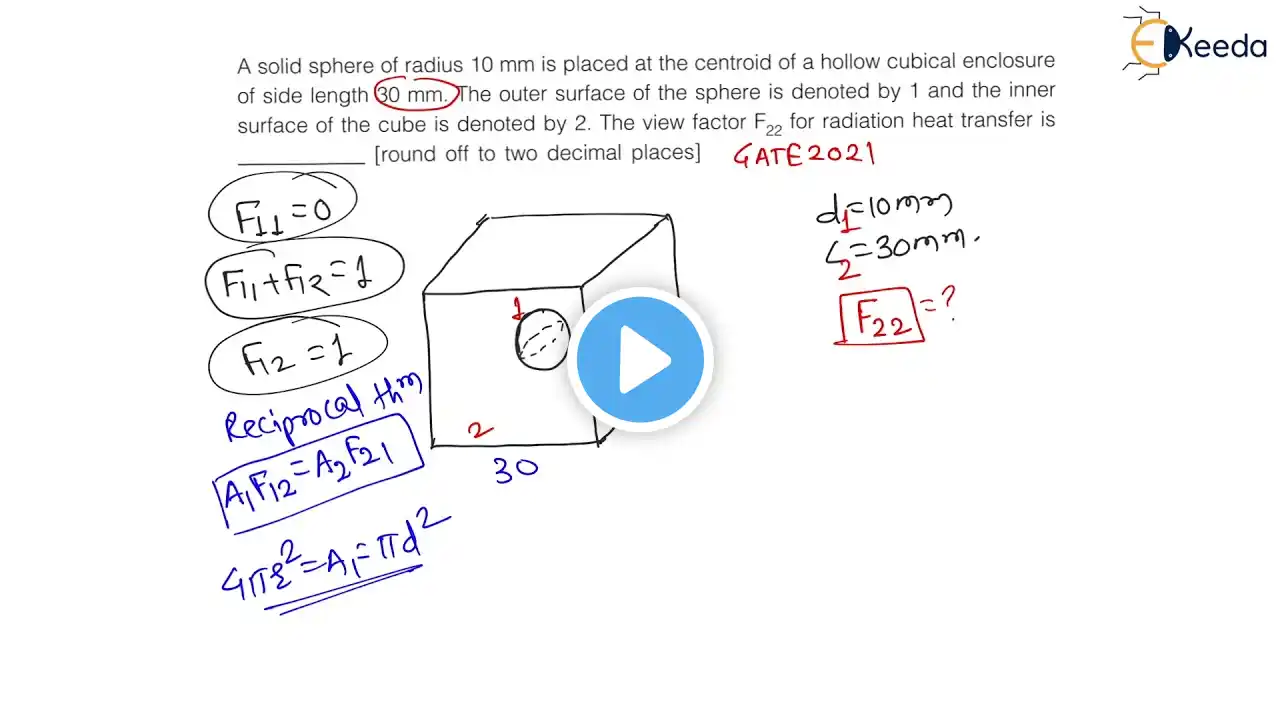 EKeeda
A solid sphere of radius 10 mm is placed at the centroid of a hollow cubical enclosure
of side length 30 mm. The outer surface of the sphere is denoted by 1 and the inner
surface of the cube is denoted by 2. The view factor F₂₂ for radiation heat transfer is
____________ [round off to two decimal places] GATE 2021
F₁₁ = 0
F₁₁ + F₁₂ = 1
F₁₂ = 1
Reciprocal thm
A₁F₁₂ = A₂F₂₁
4πr² = A₁ = πd²
1
2
30
d₁ = 10mm
L₂ = 30mm.
F₂₂ = ?